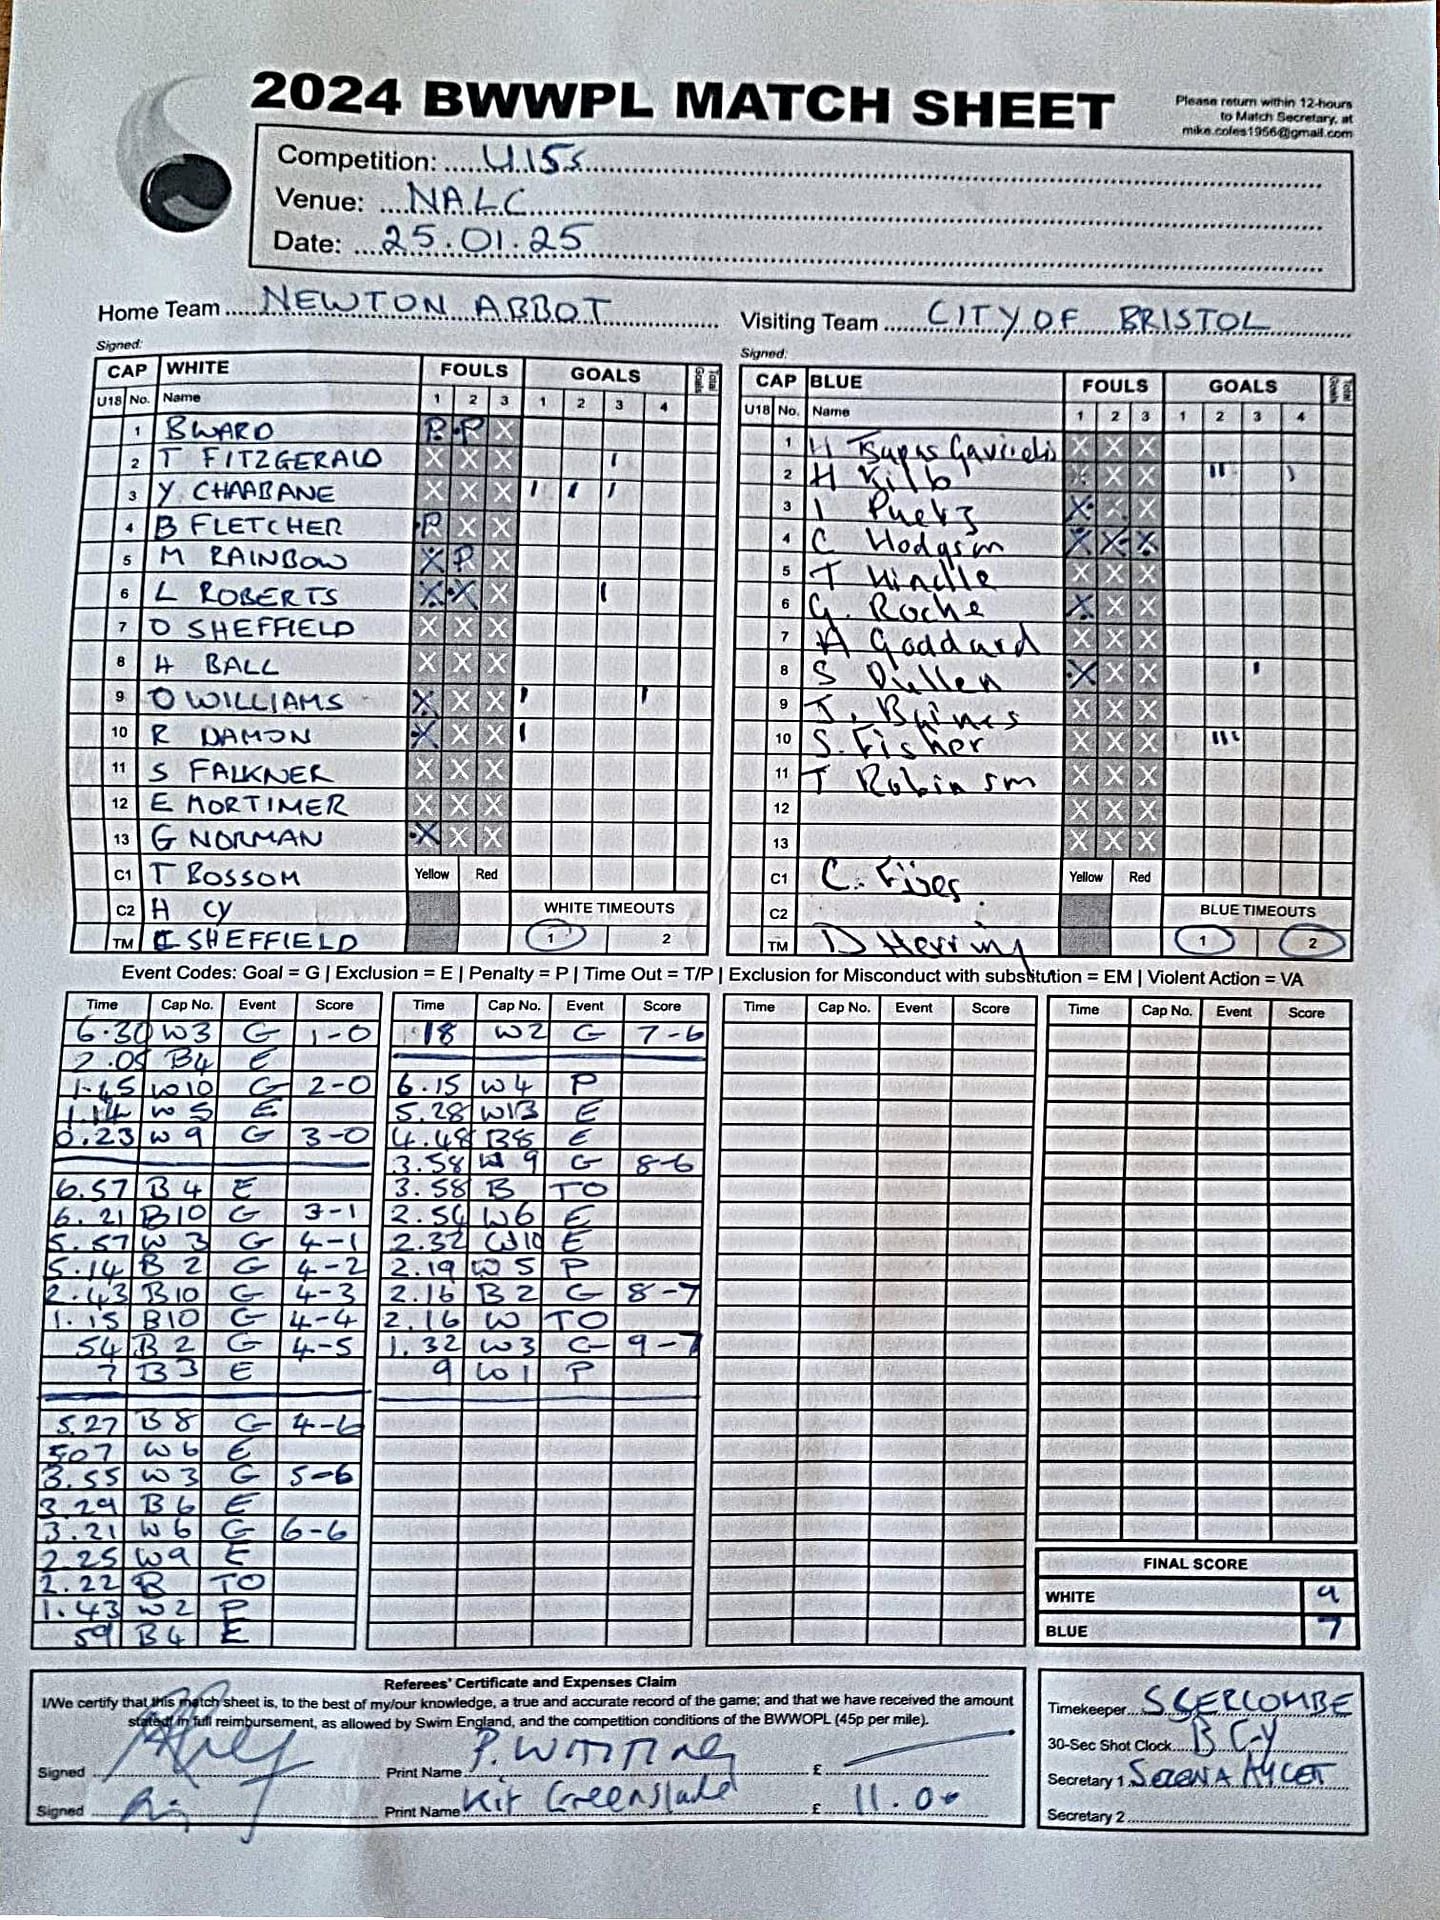 2024 BWWPL MATCH SHEET
Please return within 12-hours
to Match Secretary, at
mike.coles1956@gmail.com
Competition: U15s
Venue: NALC
Date: 25.01.25
Home Team NEWTON ABBOT
Visiting Team CITY OF BRISTOL
Signed:
CAP WHITE FOULS GOALS Total Goals
U18 No. Name 1 2 3 1 2 3 4
1 B WARD P P X
2 T FITZGERALD X X X
3 Y CHAABANE X X X
4 B FLETCHER P X X
5 M RAINBOW X P X
6 L ROBERTS X X X
7 O SHEFFIELD X X X
8 H BALL X X X
9 O WILLIAMS X X X
10 R DAMON X X X
11 S FALKNER X X X
12 E MORTIMER X X X
13 G NORMAN X X X
C1 T BOSSOM Yellow Red
C2 H CY WHITE TIMEOUTS
TM SHEFFIELD 1 2
Signed:
CAP BLUE FOULS GOALS Total Goals
U18 No. Name 1 2 3 1 2 3 4
1 H X X X
2 H Kilb X X X
3 X X X
4 C Hodgson X X X
5 T Hindle X X X
6 G Roche X X X
7 H Goddard X X X
8 S Pullen X X X
9 J. Baines X X X
10 S. Fisher X X X
11 T Robinson X X X
12 X X X
13 X X X
C1 C. Yellow Red
C2 BLUE TIMEOUTS
TM D Herring 1 2
Event Codes: Goal = G | Exclusion = E | Penalty = P | Time Out = T/P | Exclusion for Misconduct with substitution = EM | Violent Action = VA
Time Cap No. Event Score
6.30 W3 G 1-0
2.05 B4 E
1.45 W10 G 2-0
1.14 W5 E
0.23 W9 G 3-0
6.57 B4 E
6.21 B10 G 3-1
5.57 W3 G 4-1
5.14 B2 G 4-2
2.43 B10 G 4-3
1.15 B10 G 4-4
54 B2 G 4-5
7 B3 E
5.27 B8 G 4-6
507 W6 E
3.55 W3 G 5-6
3.29 B6 E
3.21 W6 G 6-6
2.25 W9 E
2.22 B TO
1.43 W2 P
59 B4 E
Time Cap No. Event Score
18 W2 G 7-6
6.15 W4 P
5.28 W13 E
4.48 B8 E
3.58 W9 G 8-6
3.58 B TO
2.54 W6 E
2.32 W10 E
2.19 W5 P
2.16 B2 G 8-7
2.16 W TO
1.32 W3 G 9-7
9 W1 P
Time Cap No. Event Score
Time Cap No. Event Score
FINAL SCORE
WHITE 9
BLUE 7
Referees' Certificate and Expenses Claim
I/We certify that this match sheet is, to the best of my/our knowledge, a true and accurate record of the game; and that we have received the amount
stated in full reimbursement, as allowed by Swim England, and the competition conditions of the BWWOPL (45p per mile).
Signed Print Name P. £
Signed Print Name Kit Greenslade £ 11.00
Timekeeper S CERCOMBE
30-Sec Shot Clock B CY
Secretary 1 SERENA AYCET
Secretary 2